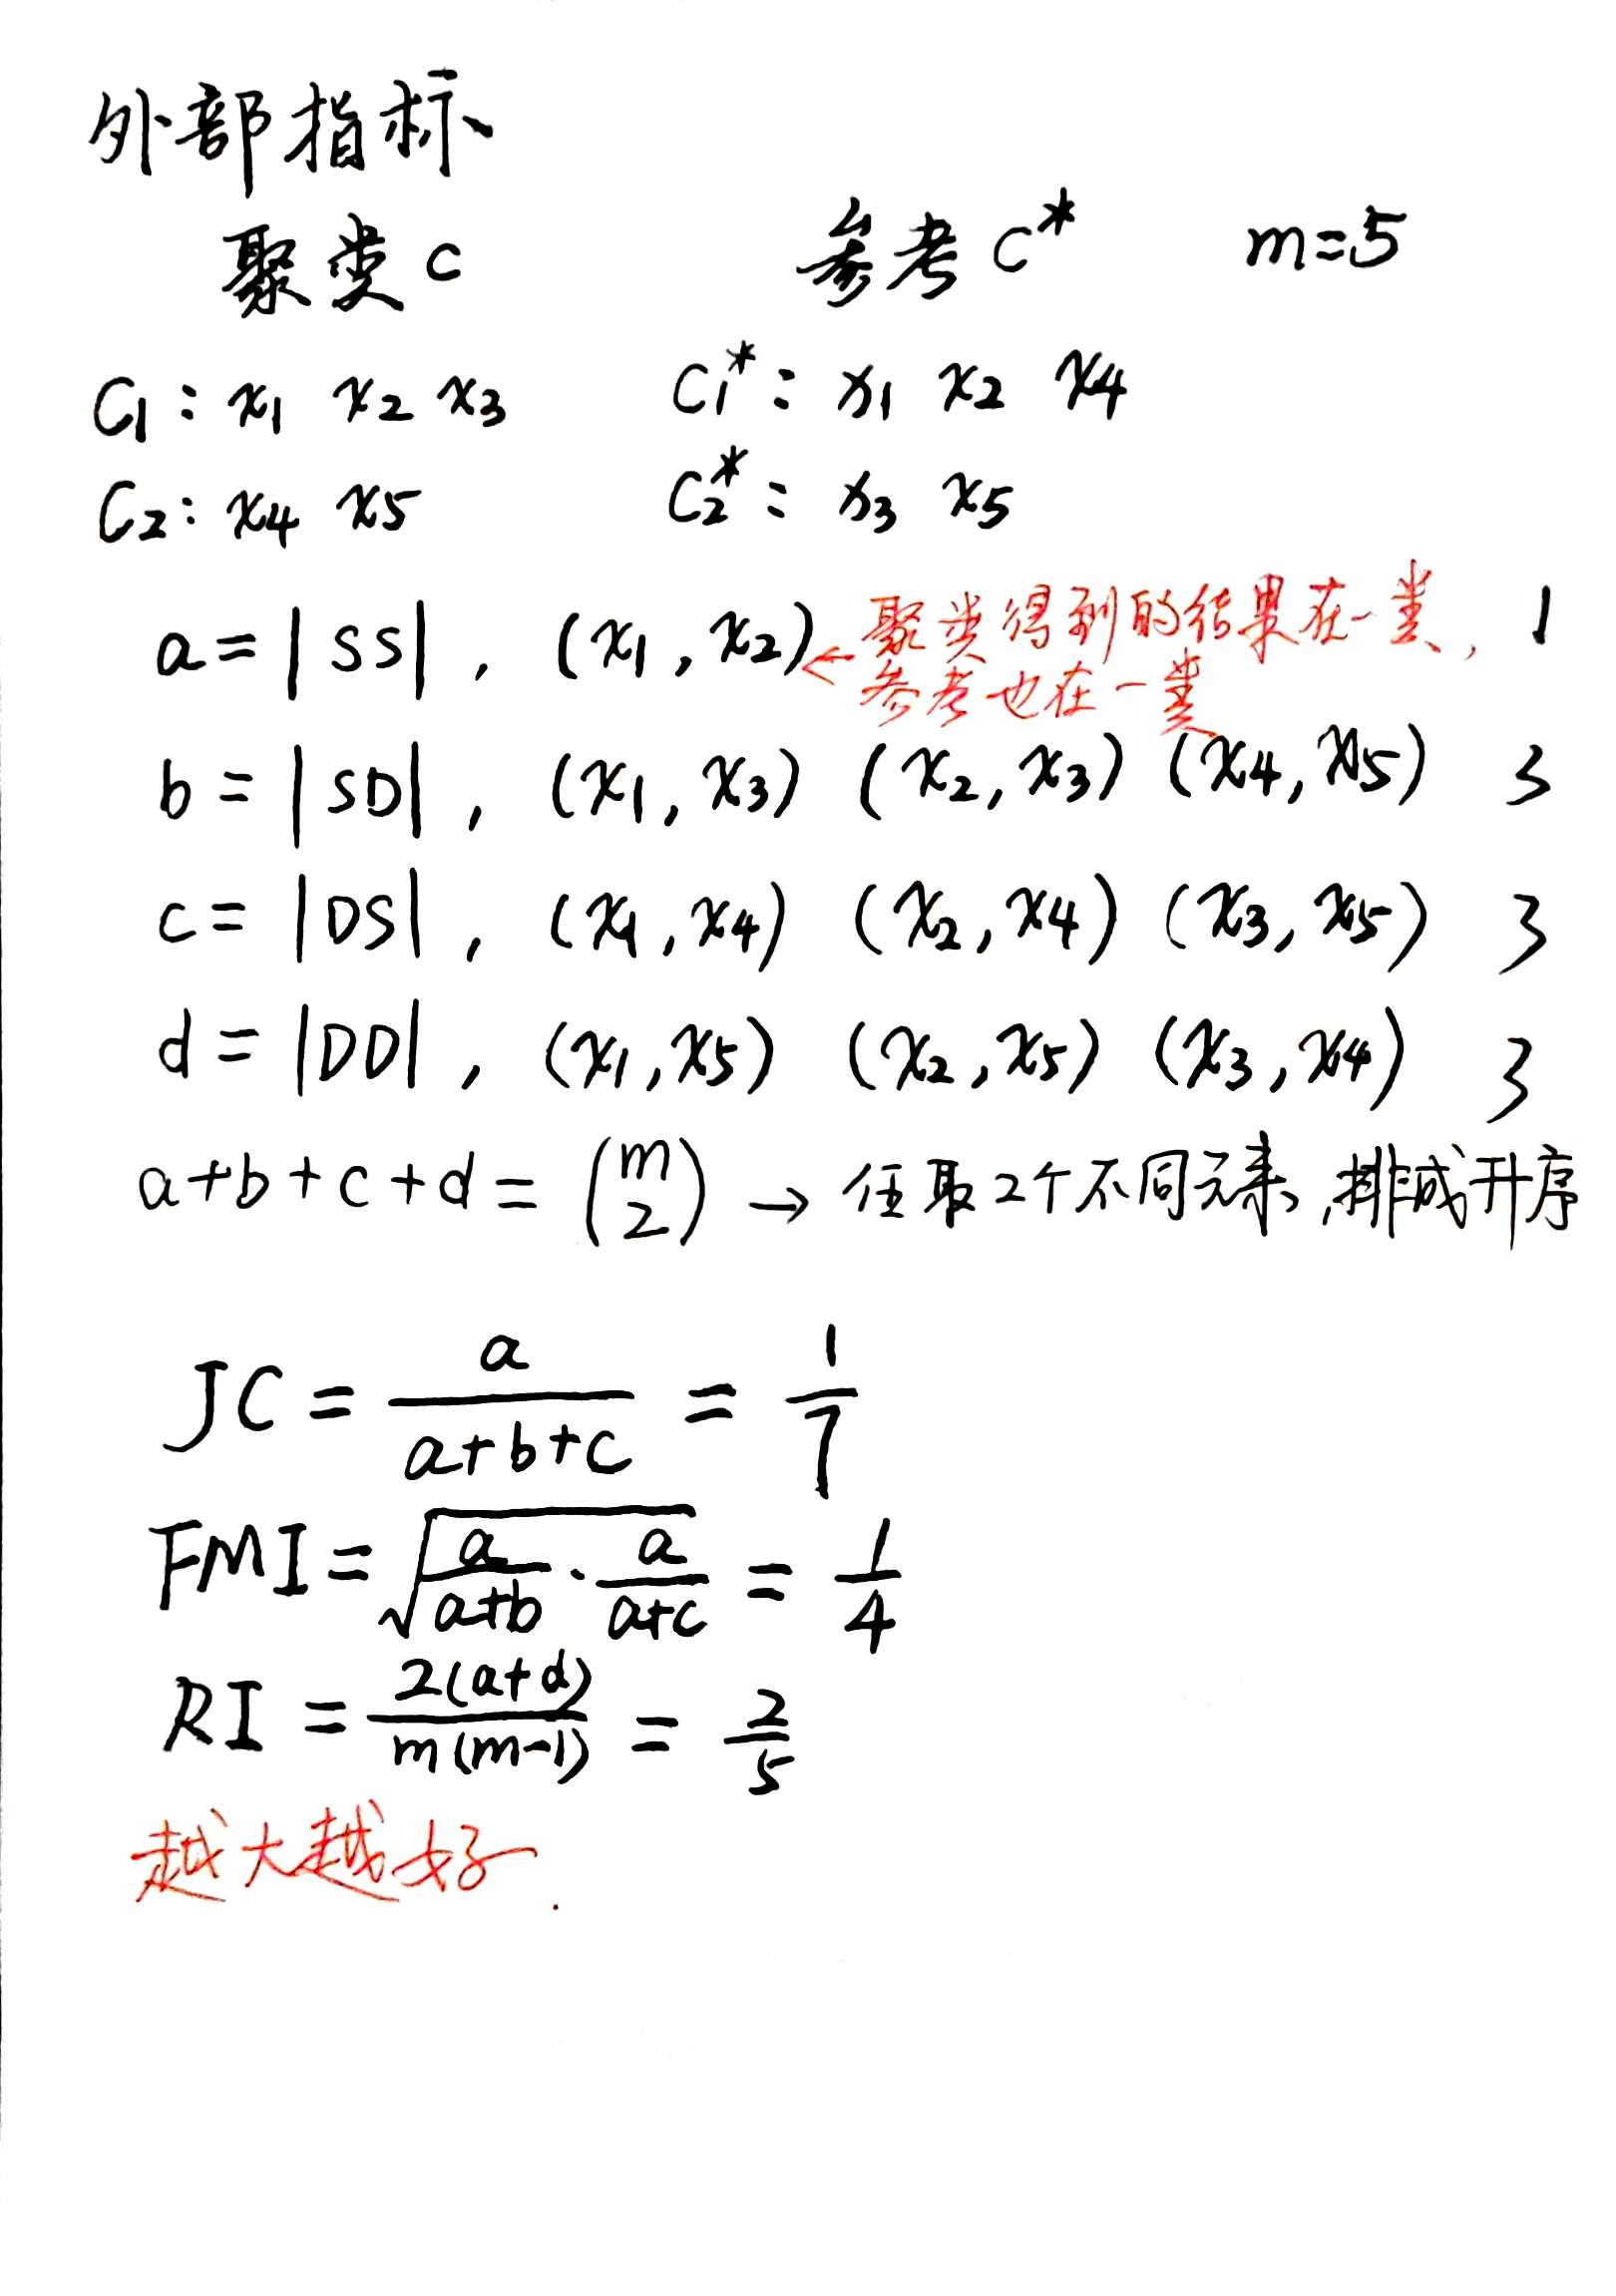 外部指标
聚类 C 参考 C* m=5
C1: x1 x2 x3 C1*: x1 x2 x4
C2: x4 x5 C2*: x3 x5
a=|SS|, (x1,x2) ← 聚类得到的结果在一类, 1
参考也在一类
b=|SD|, (x1,x3) (x2,x3) (x4,x5) 3
c=|DS|, (x1,x4) (x2,x4) (x3,x5) 3
d=|DD|, (x1,x5) (x2,x5) (x3,x4) 3
a+b+c+d=(m 2) → 任取2个不同元素,排成升序
JC = a/(a+b+c) = 1/7
FMI = √(a/(a+b)·a/(a+c)) = 1/4
RI = 2(a+d)/m(m-1) = 2/5
越大越好.